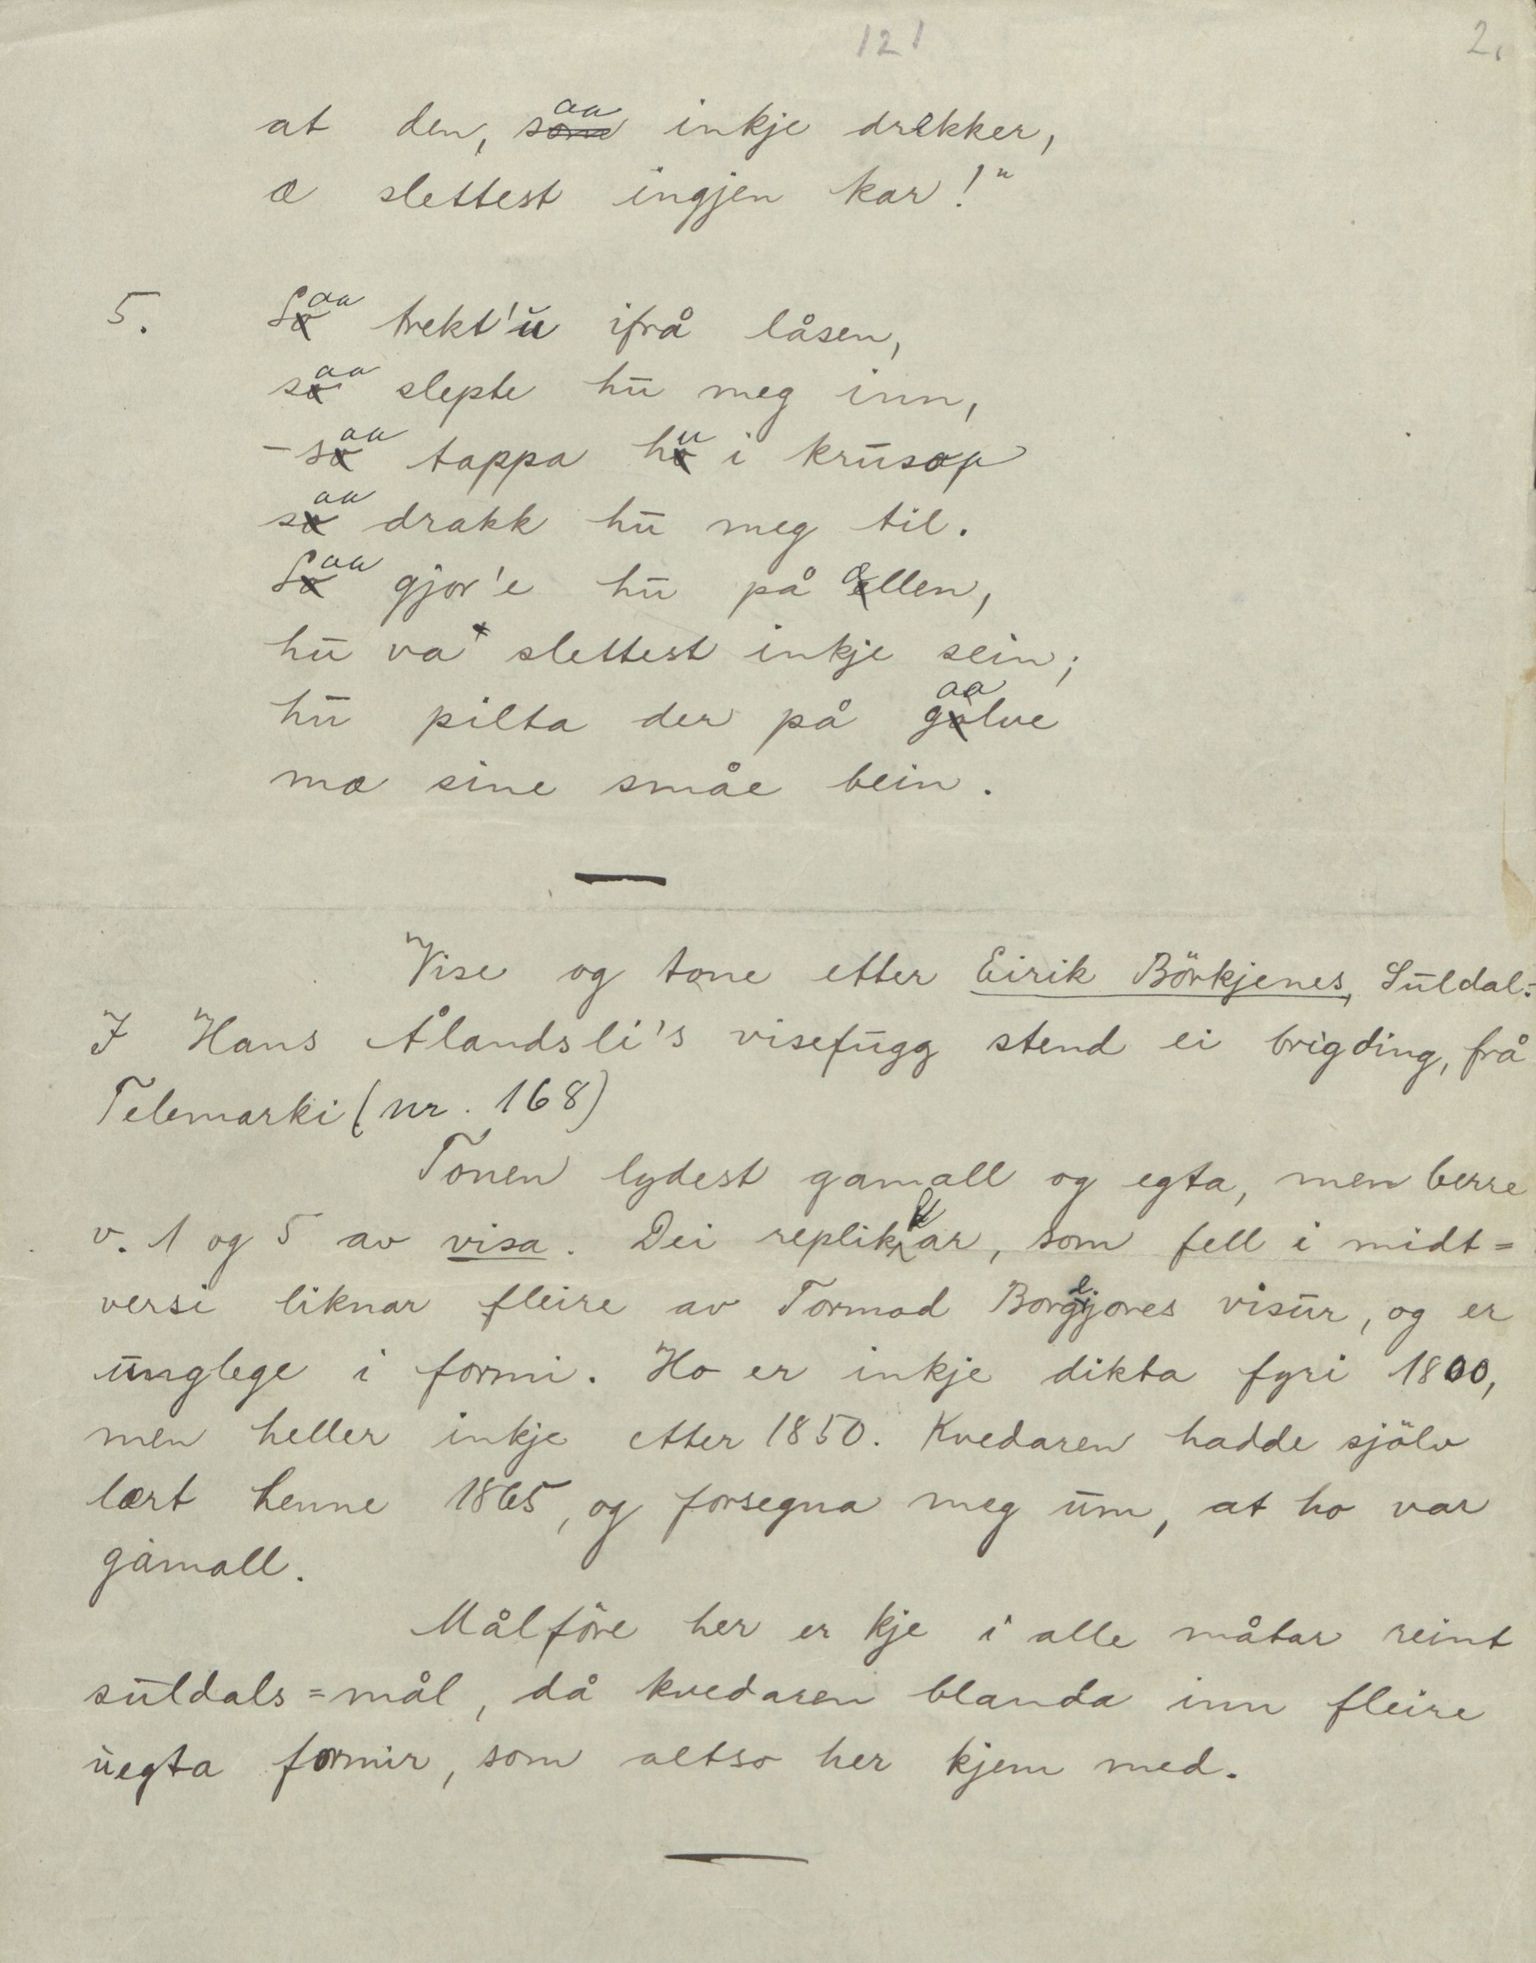 121
2.
at den, saa inkje drekker,
æ slettest ingjen kar!"
5. Saa trekt'u ifrå låsen,
saa slepte hu meg inn,
- saa tappa hu i krusop
saa drakk hu meg til.
Saa gjor'e hu på ællen,
hu va slettest inkje sein;
hu pilta der på gaalve
mæ sine småe bein.
Vise og tone etter Eirik Börkjenes, Suldal:
I Hans Ålandsli's visefugg stend ei brigding, frå
Telemarki (nr. 168)
Tonen lydest gamall og egta, men berre
v. 1 og 5 av visa. Dei replikkar, som fell i midt=
versi liknar fleire av Tormod Borgjores visur, og er
unglege i formi. Ho er inkje dikta fyri 1800,
men heller inkje etter 1850. Kvedaren hadde sjölv
lært henne 1865, og forsegna meg um, at ho var
gamall.
Målföre her er kje i alle måtar reint
suldals=mål, då kvedaren blanda inn fleire
uegta formir, som altso her kjem med.